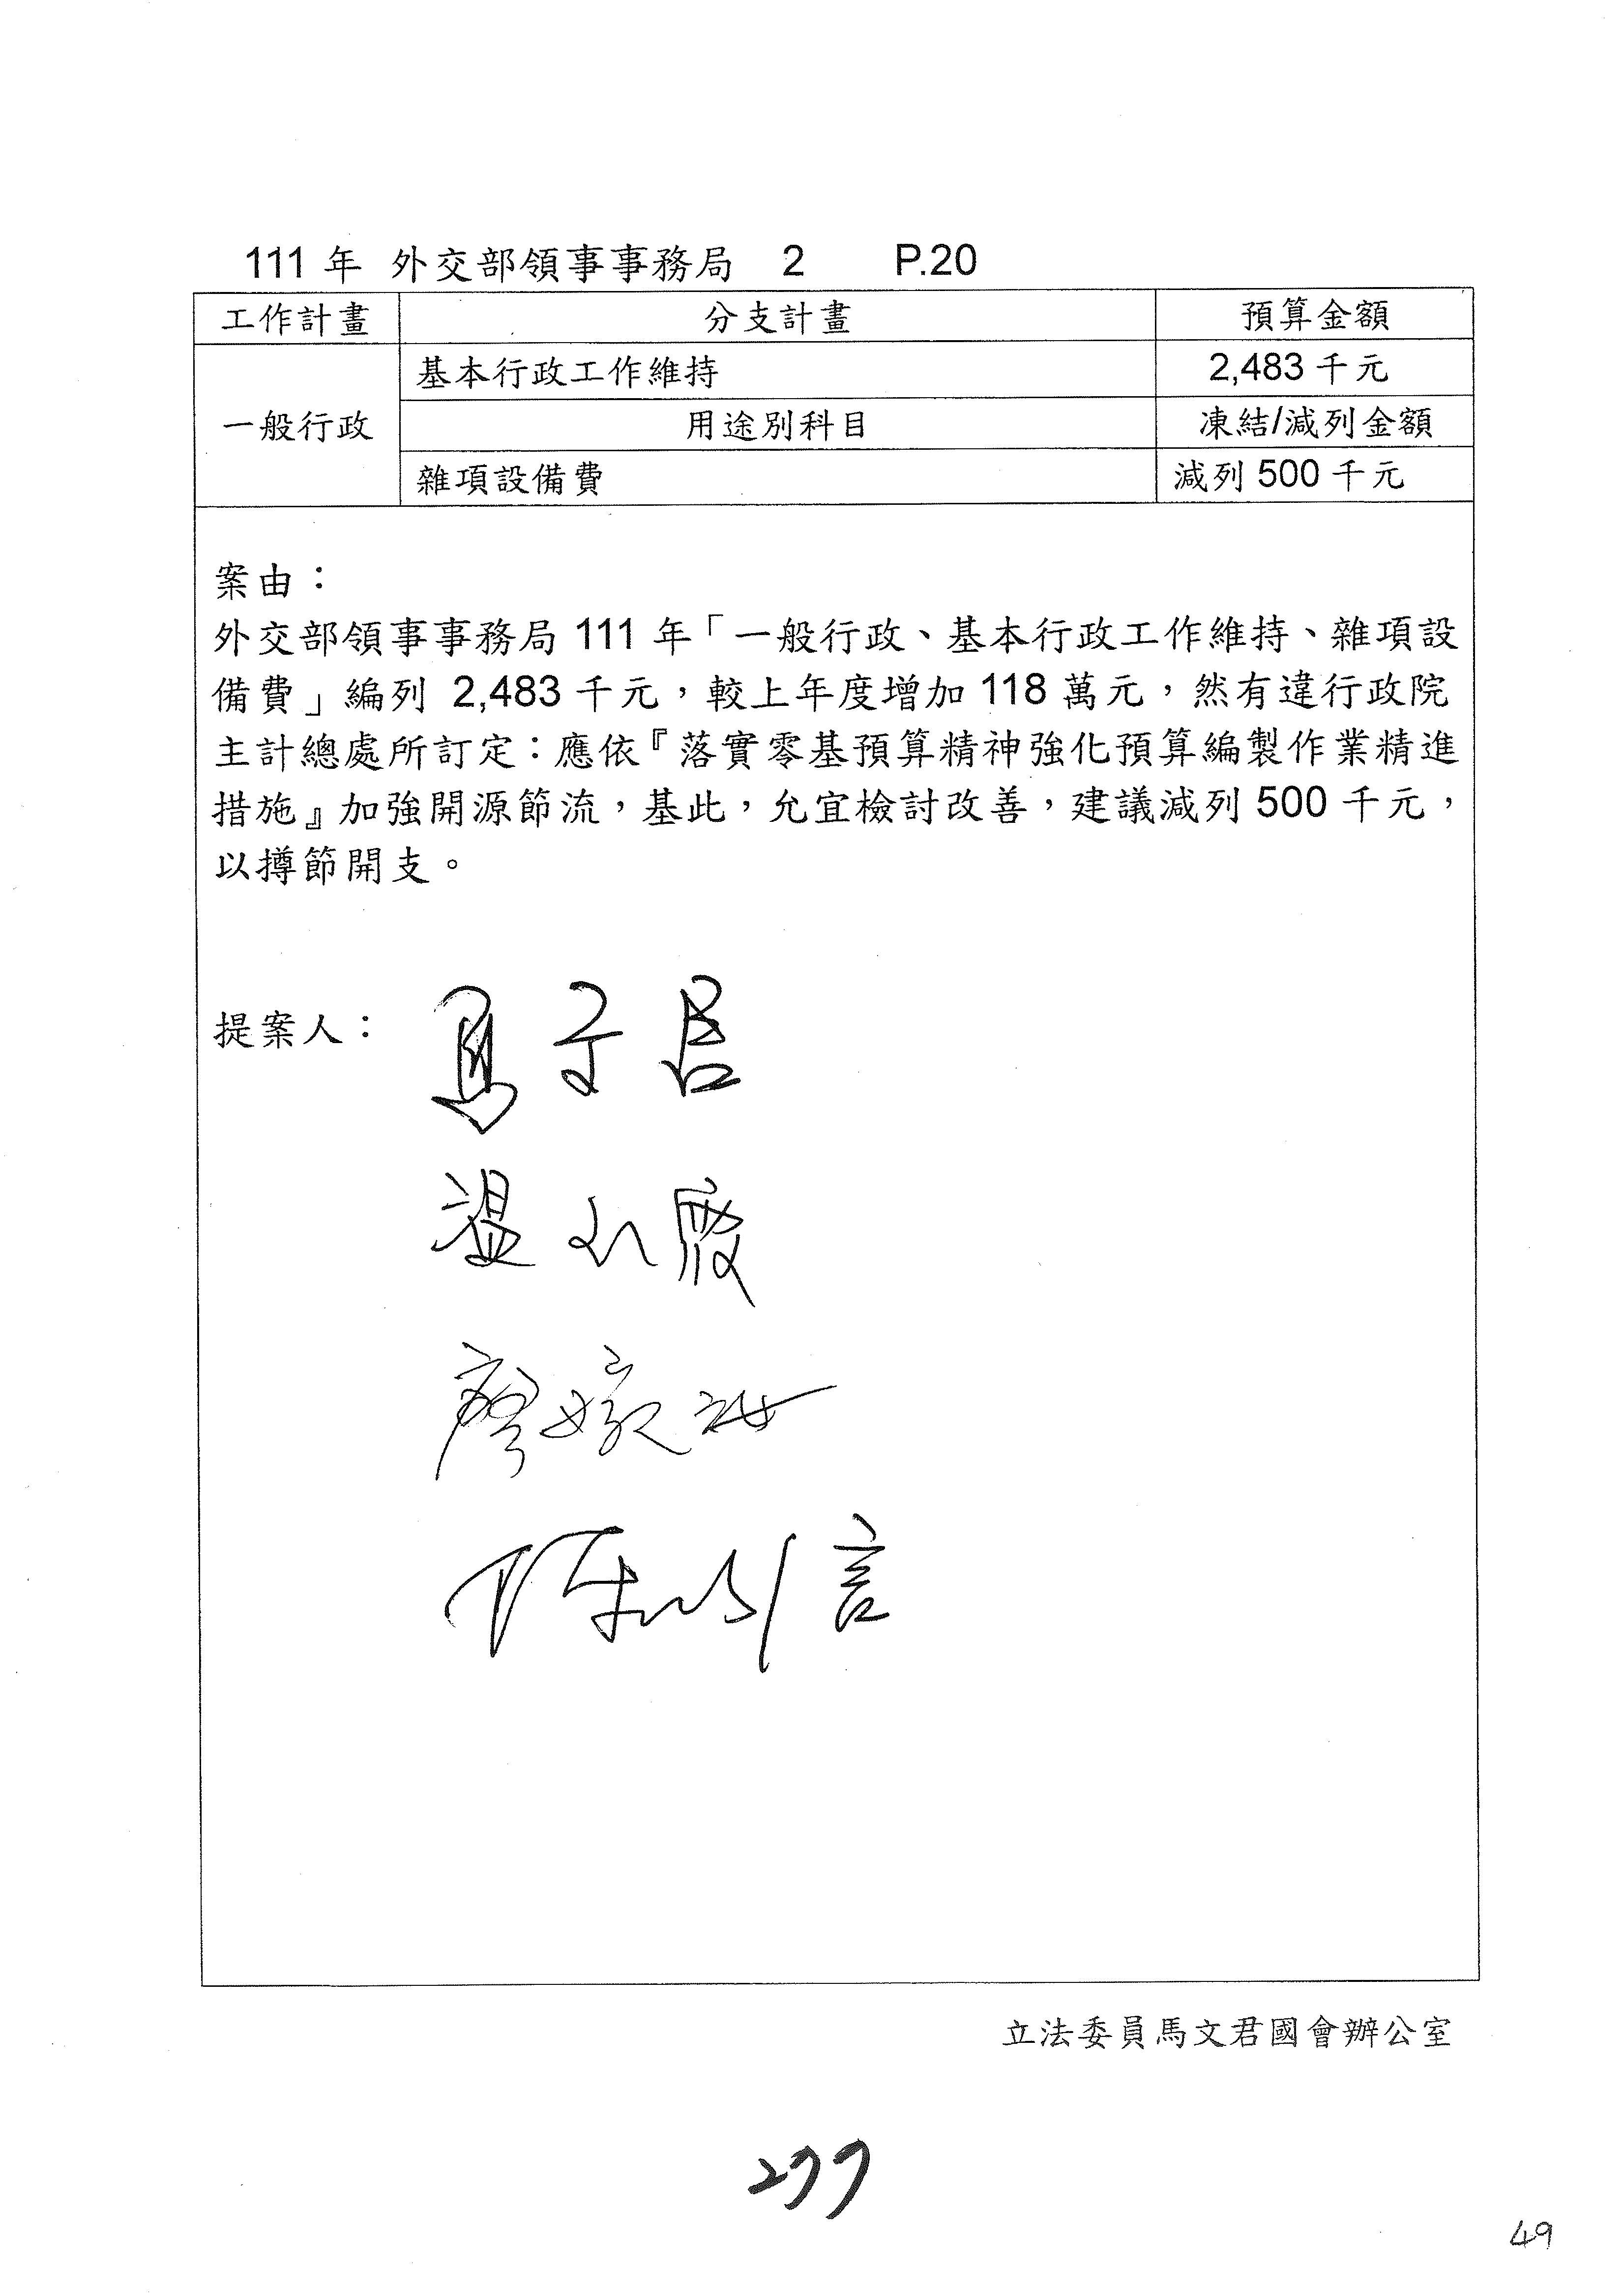 111 年 外交部領事事務局 2 P.20
工作計畫 分支計畫 預算金額
一般行政 基本行政工作維持 2,483 千元
用途別科目 凍結/減列金額
雜項設備費 減列 500 千元
案由：
外交部領事事務局 111 年「一般行政、基本行政工作維持、雜項設
備費」編列 2,483 千元，較上年度增加 118 萬元，然有違行政院
主計總處所訂定：應依『落實零基預算精神強化預算編製作業精進
措施』加強開源節流，基此，允宜檢討改善，建議減列 500 千元，
以撙節開支。
提案人： 馬文君
溫玉霞
廖婉汝
立法委員馬文君國會辦公室
277
49